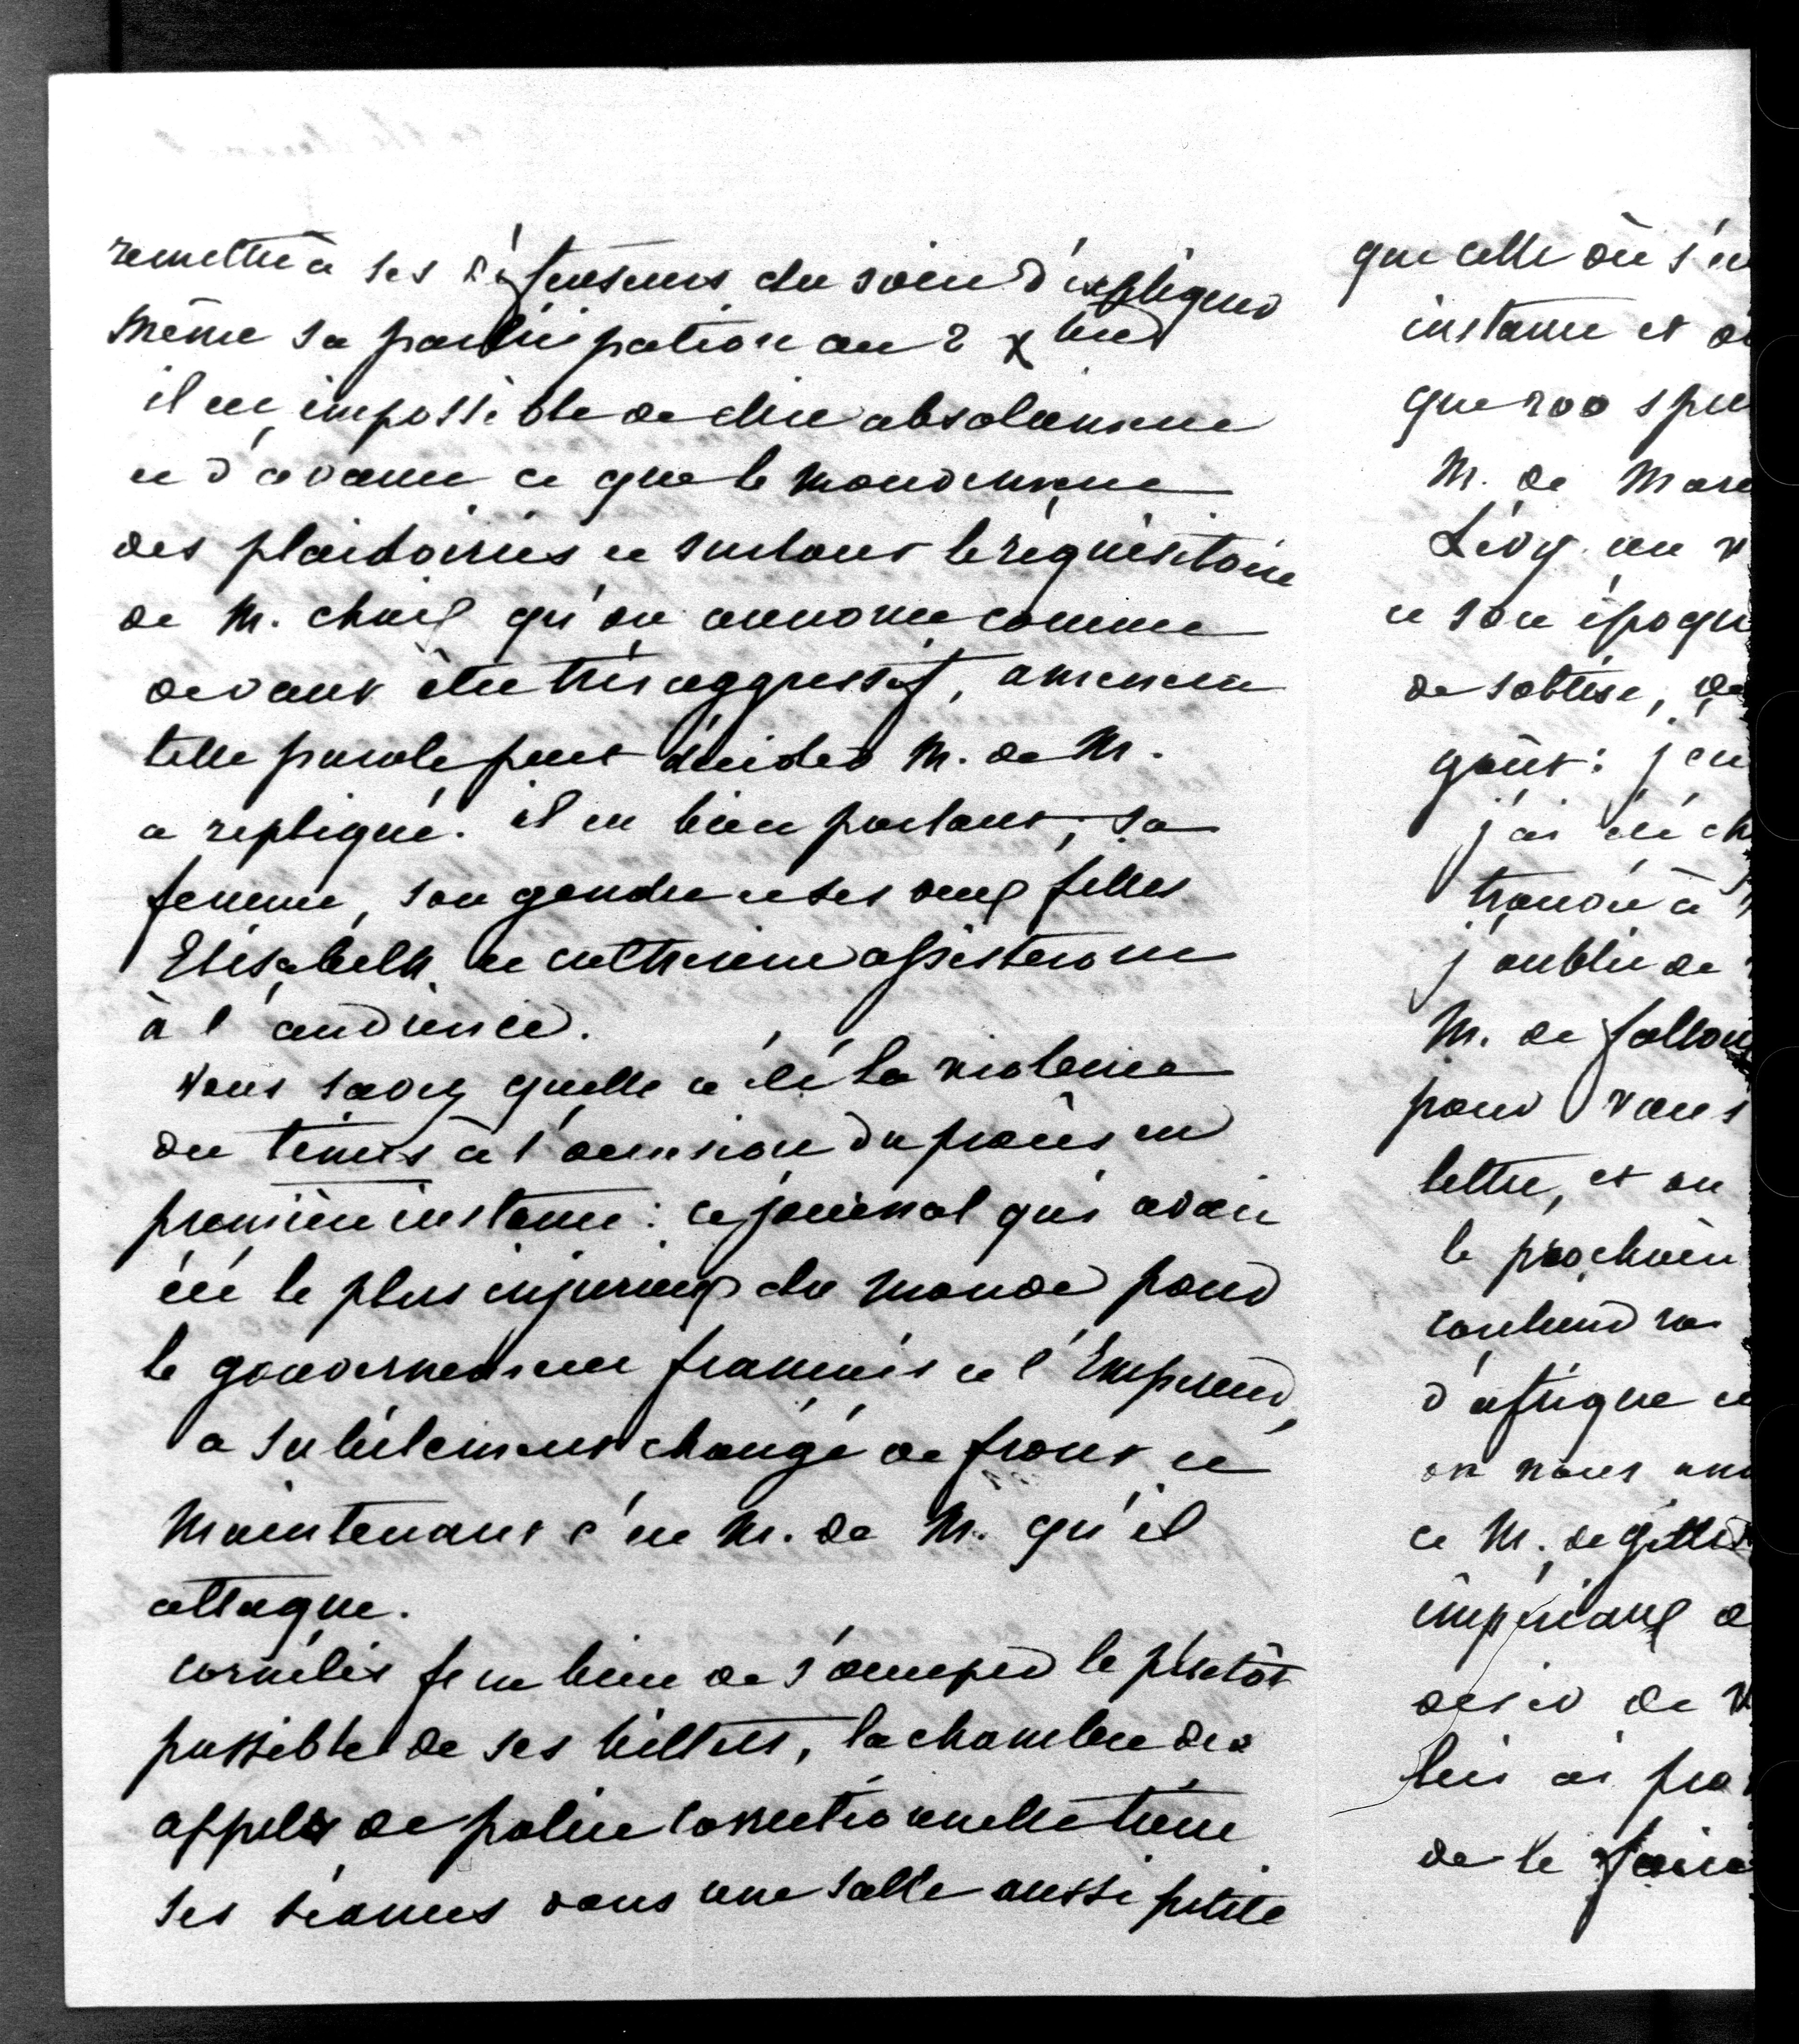 remettre à ses défenseurs du soin d'expliquer
même sa participation au 2 Xbre
il est impossible de dire absolument
et d'avance ce que le mouvement
des plaidoiries et surtout le réquisitoire
de M. chaix qu'on annonce comme
devant être très aggressif, amènera
telle parole peut décider M. de M.
a repliqué. il est bien portant, sa
femme, son gendre et ses deux filles
Elisabeth et catherine assisteront
à l'audience.
vous savez quelle a été la violence
du times à l'occasion du procès en
première instance : ce journal qui avait
été le plus injurieux du monde pour
le gouvernement francais et l'Empereur,
a subitement changé de front et
maintenant c'est M. de M. qu'il
attaque.
cornélis fera bien de s'occuper le plutôt
possible de ses billets, la chambre des
appels de police correctionnelle tient
ses séances dans une salle aussi petite
que celle où s'
instance et
que 200
M. de
Lévy un
et son
de sottise,
goût : j'
j'ai été
trouvé à
j'oublie de
M. de
pour vous
lettre, et on
le prochain
contiendra
d'afrique
on nous
et M. de
impériaux
désir de
lui ai
de le faire